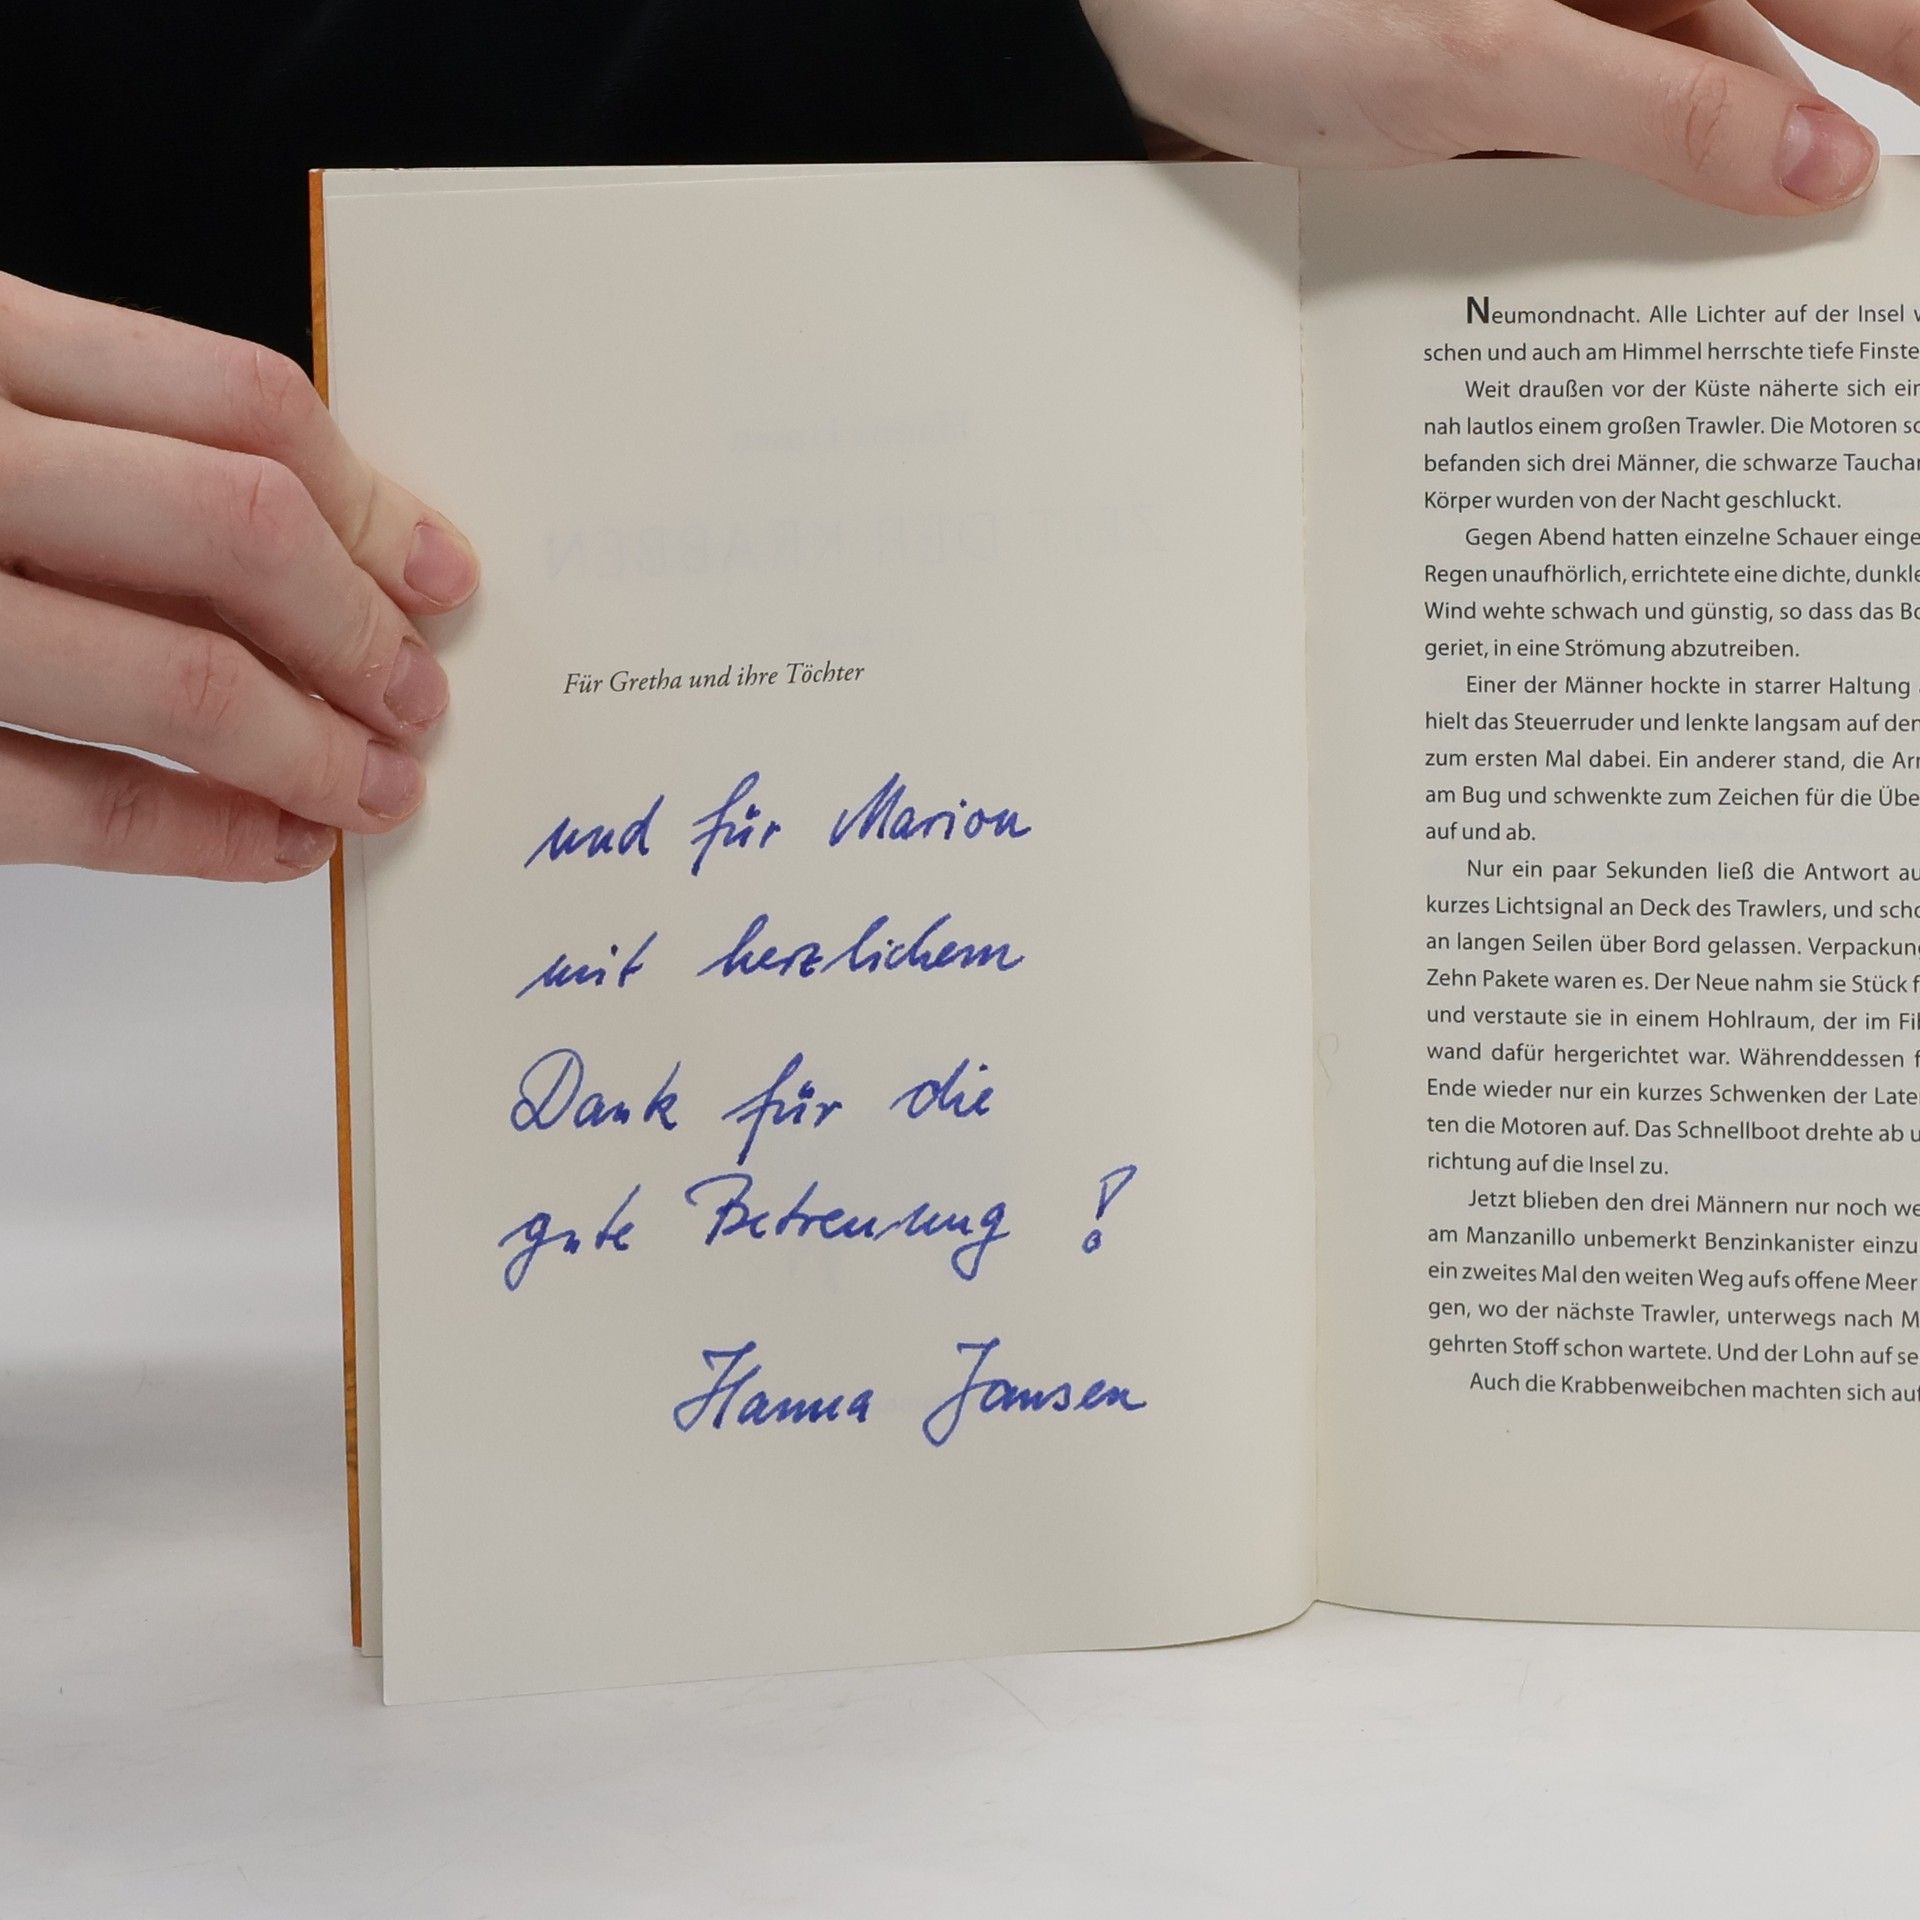 Für Gretha und ihre Töchter
und für Marion
mit herzlichem
Dank für die
gute Betreuung !
Hanna Jansen
Neumondnacht. Alle Lichter auf der Insel
schen und auch am Himmel herrschte tiefe
Weit draußen vor der Küste näherte sich
nah lautlos einem großen Trawler. Die Motoren
befanden sich drei Männer, die schwarze
Körper wurden von der Nacht geschluckt.
Gegen Abend hatten einzelne Schauer
Regen unaufhörlich, errichtete eine dichte,
Wind wehte schwach und günstig, so dass das
geriet, in eine Strömung abzutreiben.
Einer der Männer hockte in starrer Haltung
hielt das Steuerruder und lenkte langsam auf
zum ersten Mal dabei. Ein anderer stand, die
am Bug und schwenkte zum Zeichen für die
auf und ab.
Nur ein paar Sekunden ließ die Antwort
kurzes Lichtsignal an Deck des Trawlers, und
an langen Seilen über Bord gelassen.
Zehn Pakete waren es. Der Neue nahm sie Stück
und verstaute sie in einem Hohlraum, der im
wand dafür hergerichtet war. Währenddessen
Ende wieder nur ein kurzes Schwenken der
ten die Motoren auf. Das Schnellboot drehte ab
richtung auf die Insel zu.
Jetzt blieben den drei Männern nur noch
am Manzanillo unbemerkt Benzinkanister
ein zweites Mal den weiten Weg aufs offene Meer
gen, wo der nächste Trawler, unterwegs nach
gehrten Stoff schon wartete. Und der Lohn auf
Auch die Krabbenweibchen machten sich